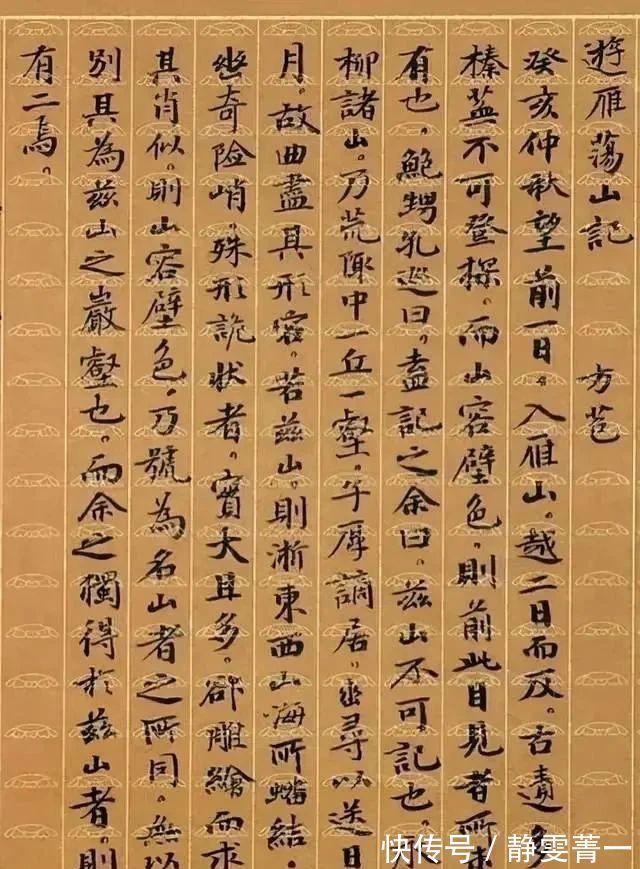 遊雁蕩山記 方苞
癸亥仲秋望前一日。入雁山。越二日而反。古多
榛蕪不可登探。而山容壁色。則前此目見者所未
有也。鮑甥孔巡曰。盍記之余曰。茲山不可記也。永
柳諸山。乃荒陬中一丘一壑。子厚謫居。幽尋以送日
月。故曲盡其形容。若茲山。則浙東西山海所蟠結。
幽奇險峭。殊形詭狀者。實大且多。欲雕繪而求
其肖似。則山容壁色。乃號為名山者之所同。無以
別其為茲山之巖壑也。而余之獨得於茲山者。則
有二焉。
快传号/静雯菁一